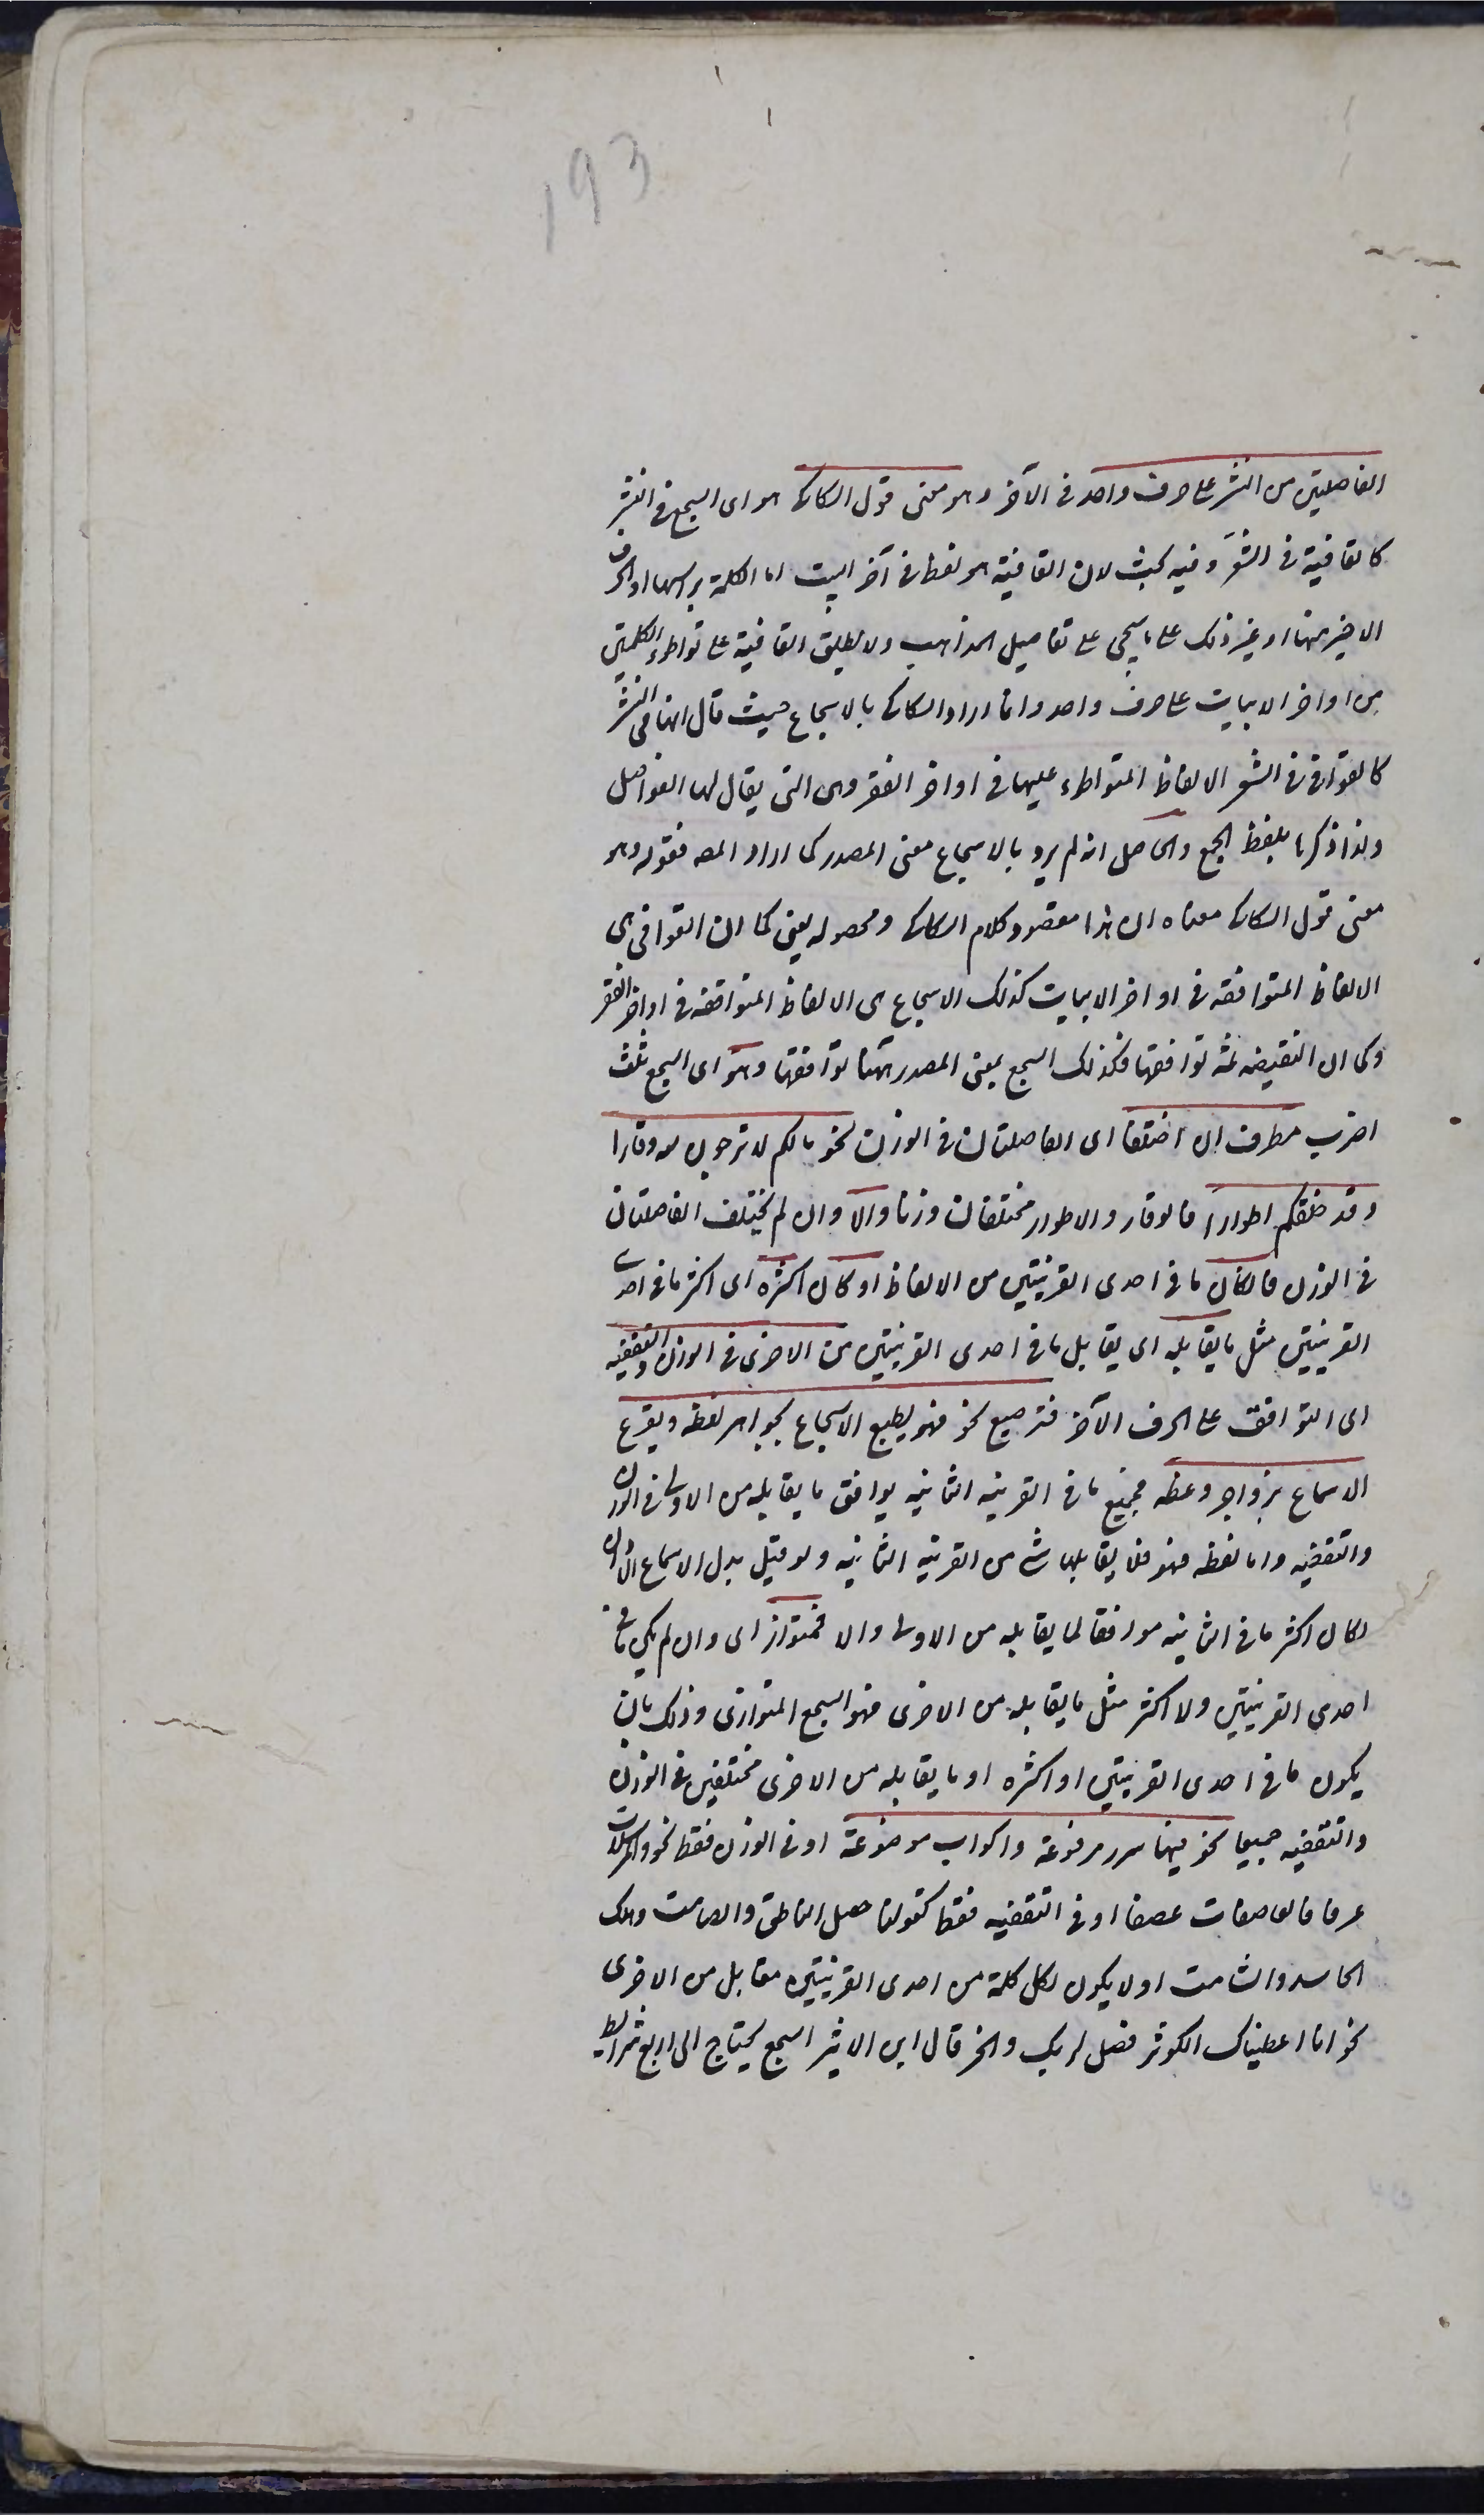 193
الفاصلتين من النثر على حرف واحد فى الآخر وهو معنى قول السكاكى هو اى السجع فى النثر
كالقافية فى الشعر وفيه بحث لان القافية هو لفظ فى آخر البيت اما الكلمة براسها او الحرف
الاخير منها او غير ذلك على ما سيجى على تفاصيل المذاهب ولا يطلق القافية على تواطؤ الكلمتين
من اواخر الابيات على حرف واحد وانما اراد السكاكى بالاسجاع حيث قال انها فى النثر
كالقوافى فى الشعر الالفاظ المتواطء عليها فى اواخر الفقر وهى التى يقال لها الفواصل
ولذا ذكرها بلفظ الجمع والحاصل انه لم يرد بالاسجاع معنى المصدر كما اراد المصـ فقوله وهو
معنى قول السكاكى معناه ان هذا مقصود كلام السكاكى ومحصوله يعنى كما ان القوافى هى
الالفاظ المتوافقه فى اواخر الابيات كذلك الاسجاع هى الالفاظ المتوافقه فى اواخر الفقر
وكما ان التقفيه ثمه توافقها فكذلك السجع بمعنى المصدر ههنا توافقها وهو اى السجع ثلث
اضرب مطرف ان اختلفا اى الفاصلتان فى الوزن نحو مالكم لا ترجون لله وقارا
وقد خلقكم اطوارا فالوقار والاطوار مختلفان وزنا والا وان لم يختلف الفاصلتان
فى الوزن فان كان ما فى احدى القرينتين من الالفاظ او كان اكثره اى اكثر ما فى احدى
القرينتين مثل ما يقابله اى يقابل ما فى احدى القرينتين من الاخرى فى الوزن والتقفيه
اى التوافق على الحرف الآخر فترصيع نحو فهو يطبع الاسجاع بجواهر لفظه ويقرع
الاسماع بزواجر وعظه فجميع ما فى القرينه الثانيه يوافق ما يقابله من الاولى فى الوزن
والتقفيه واما لفظه فهو فلا يقابلها شى من القرينه الثانيه ولو قيل بدل الاسماع الاذان
لكان اكثر ما فى الثانيه موافقا لما يقابله من الاولى والا فمتواز اى وان لم يكن ما فى
احدى القرينتين ولا اكثر مثل ما يقابله من الاخرى فهو السجع المتوازى وذلك بان
يكون ما فى احدى القرينتين او اكثره او ما يقابله من الاخرى مختلفين فى الوزن
والتقفيه جميعا نحو فيها سرر مرفوعة واكواب موضوعة او فى الوزن فقط نحو والمرسلات
عرفا فالعاصفات عصفا او فى التقفيه فقط كقولنا حصل الناطق والصامت وهلك
الحاسد والشامت اولا يكون لكل كلمة من احدى القرينتين مقابل من الاخرى
نحو انا اعطيناك الكوثر فصل لربك وانحر قال ابن الاثير السجع يحتاج الى اربع شرائط